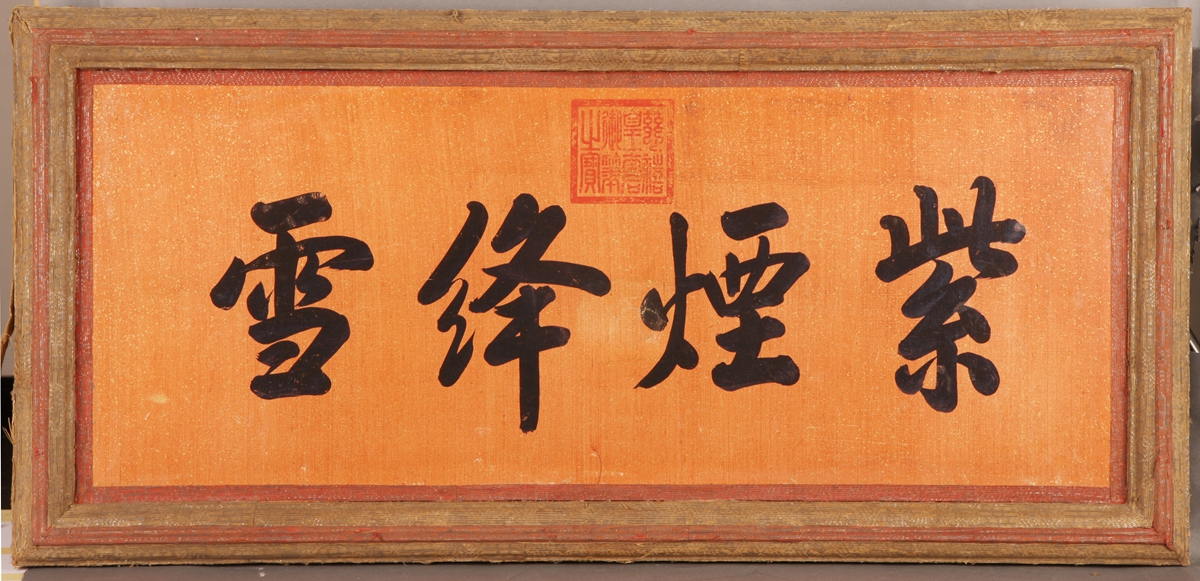 紫煙絳雪
慈禧
皇太后
御筆
之寶